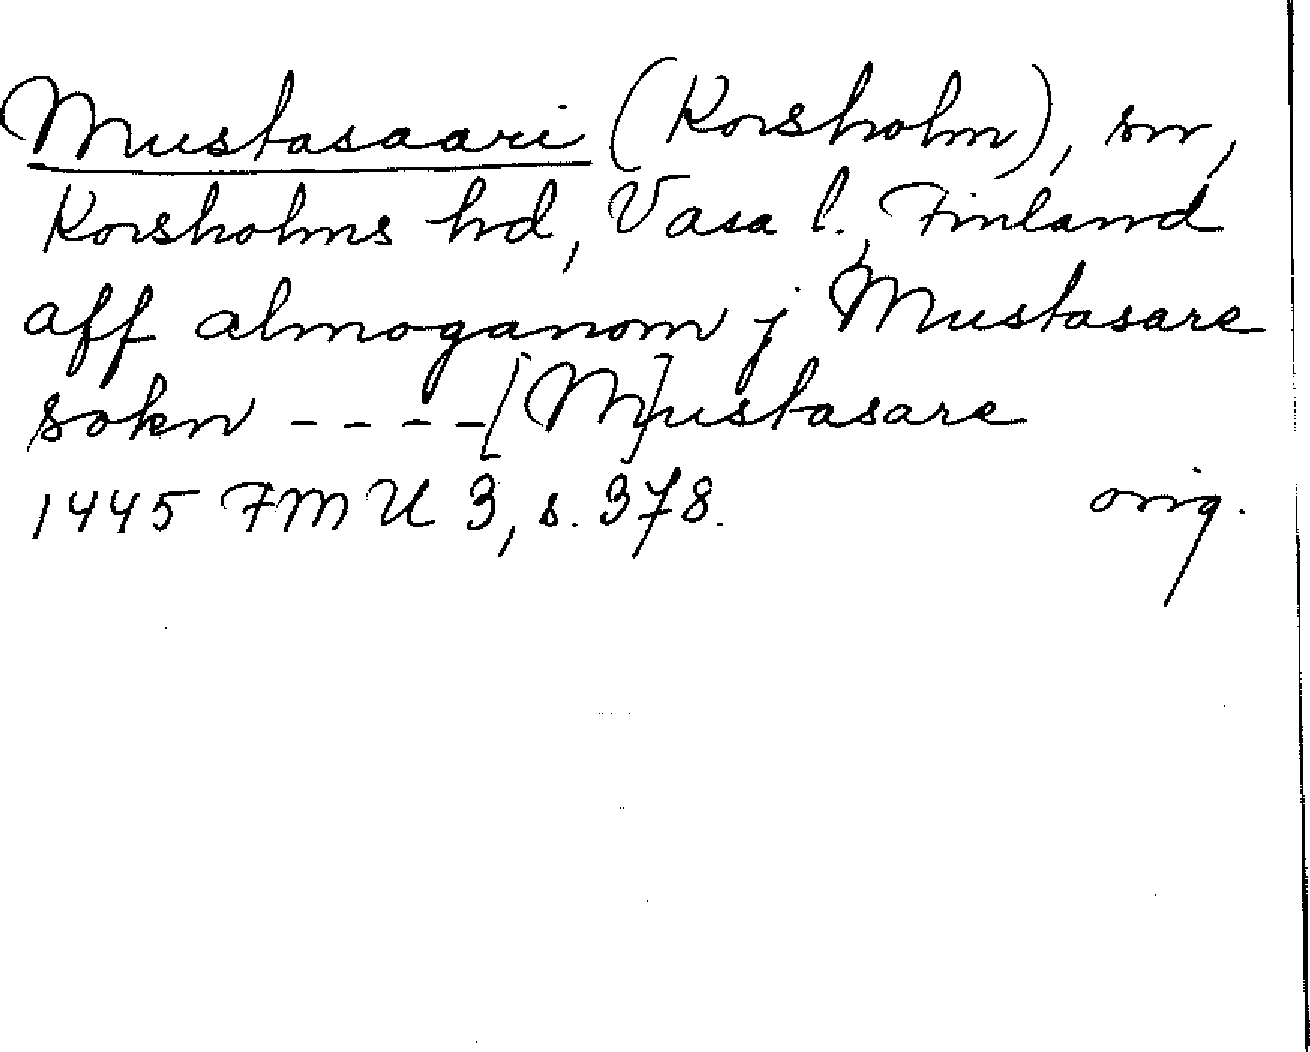 Mustasaari (Korsholm), sn,
Korsholms hd, Vasa l., Finland
aff almoganom j Mustasare
sokn ---- [M]ustasare
1445 FMU 3, s. 378. orig.